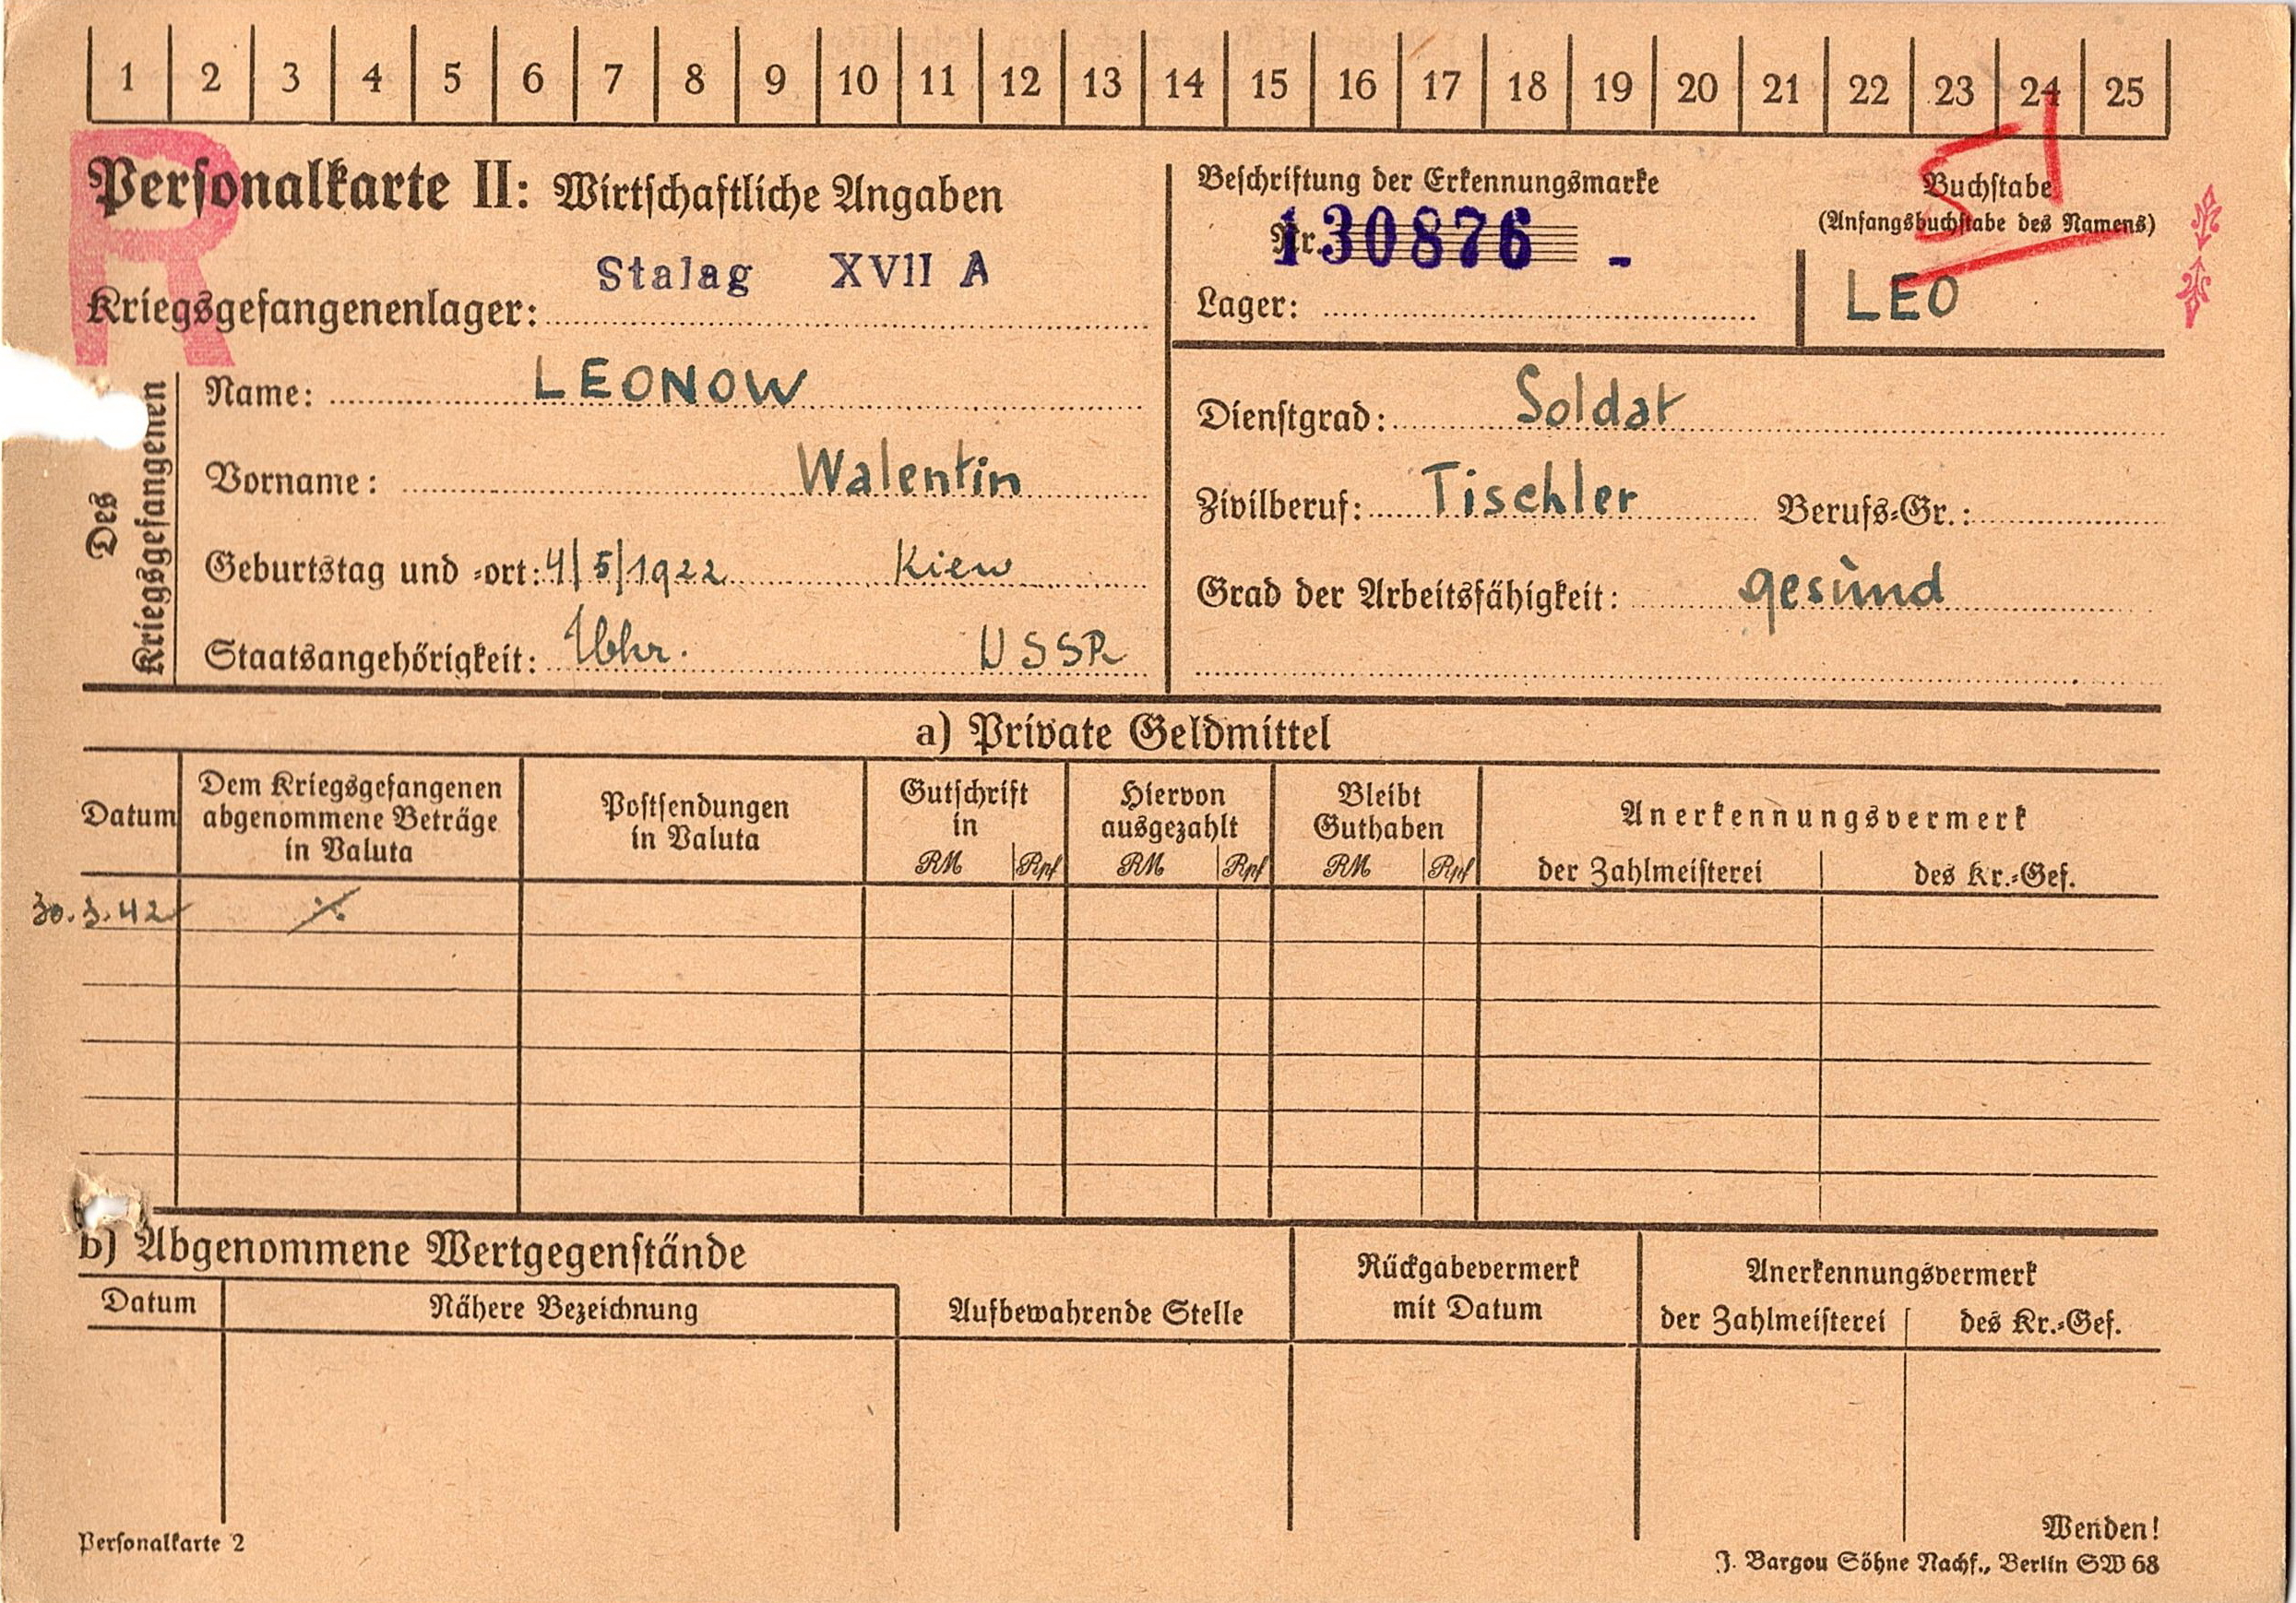 1 2 3 4 5 6 7 8 9 10 11 12 13 14 15 16 17 18 19 20 21 22 23 24 25
R
Personalkarte II: Wirtschaftliche Angaben
Stalag XVII A
Kriegsgefangenenlager:
Beschriftung der Erkennungsmarke
Nr. 130876 -
Lager:
Buchstabe
(Anfangsbuchstabe des Namens)
LEO
Des Kriegsgefangenen
Name: LEONOW
Vorname: Walentin
Geburtstag und -ort: 4/5/1922 Kiew
Staatsangehörigkeit: Ukr. USSR
Dienstgrad: Soldat
Zivilberuf: Tischler Berufs-Gr.:
Grad der Arbeitsfähigkeit: gesund
a) Private Geldmittel
Datum
Dem Kriegsgefangenen
abgenommene Beträge
in Valuta
Postsendungen
in Valuta
Gutschrift
in
RM Rpf
Hiervon
ausgezahlt
RM Rpf
Bleibt
Guthaben
RM Rpf
Anerkennungsvermerk
der Zahlmeisterei des Kr.-Gef.
30.3.42 ·/.
b) Abgenommene Wertgegenstände
Datum Nähere Bezeichnung
Aufbewahrende Stelle
Rückgabevermerk
mit Datum
Anerkennungsvermerk
der Zahlmeisterei des Kr.-Gef.
Wenden!
Personalkarte 2
J. Bargou Söhne Nachf., Berlin SW 68